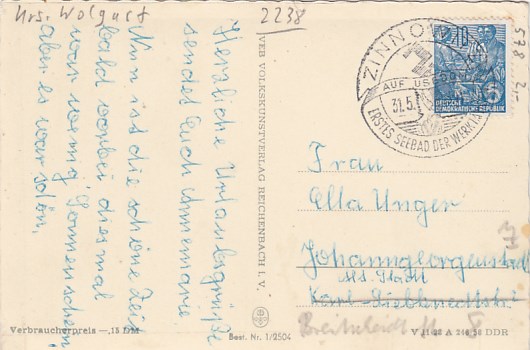 Krs. Wolgast
2238
578
2,-
Herzliche Urlaubsgrüße
sendet Euch Annemarie
Nun ist die schöne Zeit
bald vorbei diesmal
war wenig Sonnenschein
aber es war schön.
VEB VOLKSKUNSTVERLAG REICHENBACH I. V.
ZINNOWITZ
AUF USEDOM
31.5.
ERSTES SEEBAD DER WERKTÄTIGEN
10
5
DEUTSCHE
DEMOKRATISCHE REPUBLIK
Frau
Ella Unger
Johanngeorgenstadt
Alt. Stadt
Karl-Liebknechtstr
Verbraucherpreis —,15 DM
Best. Nr. 1/2504
DDR